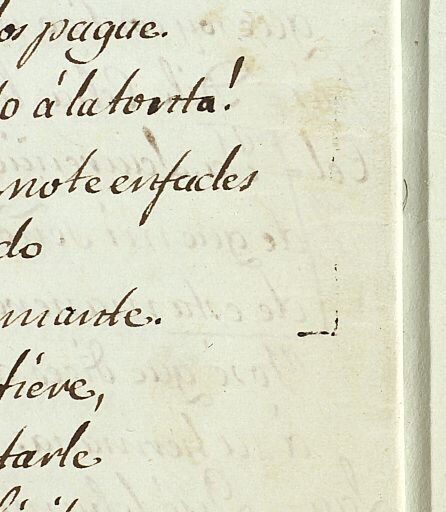 los pague.
lo á la tonta!
no te enfades
do
mante.
tiere,
tarle